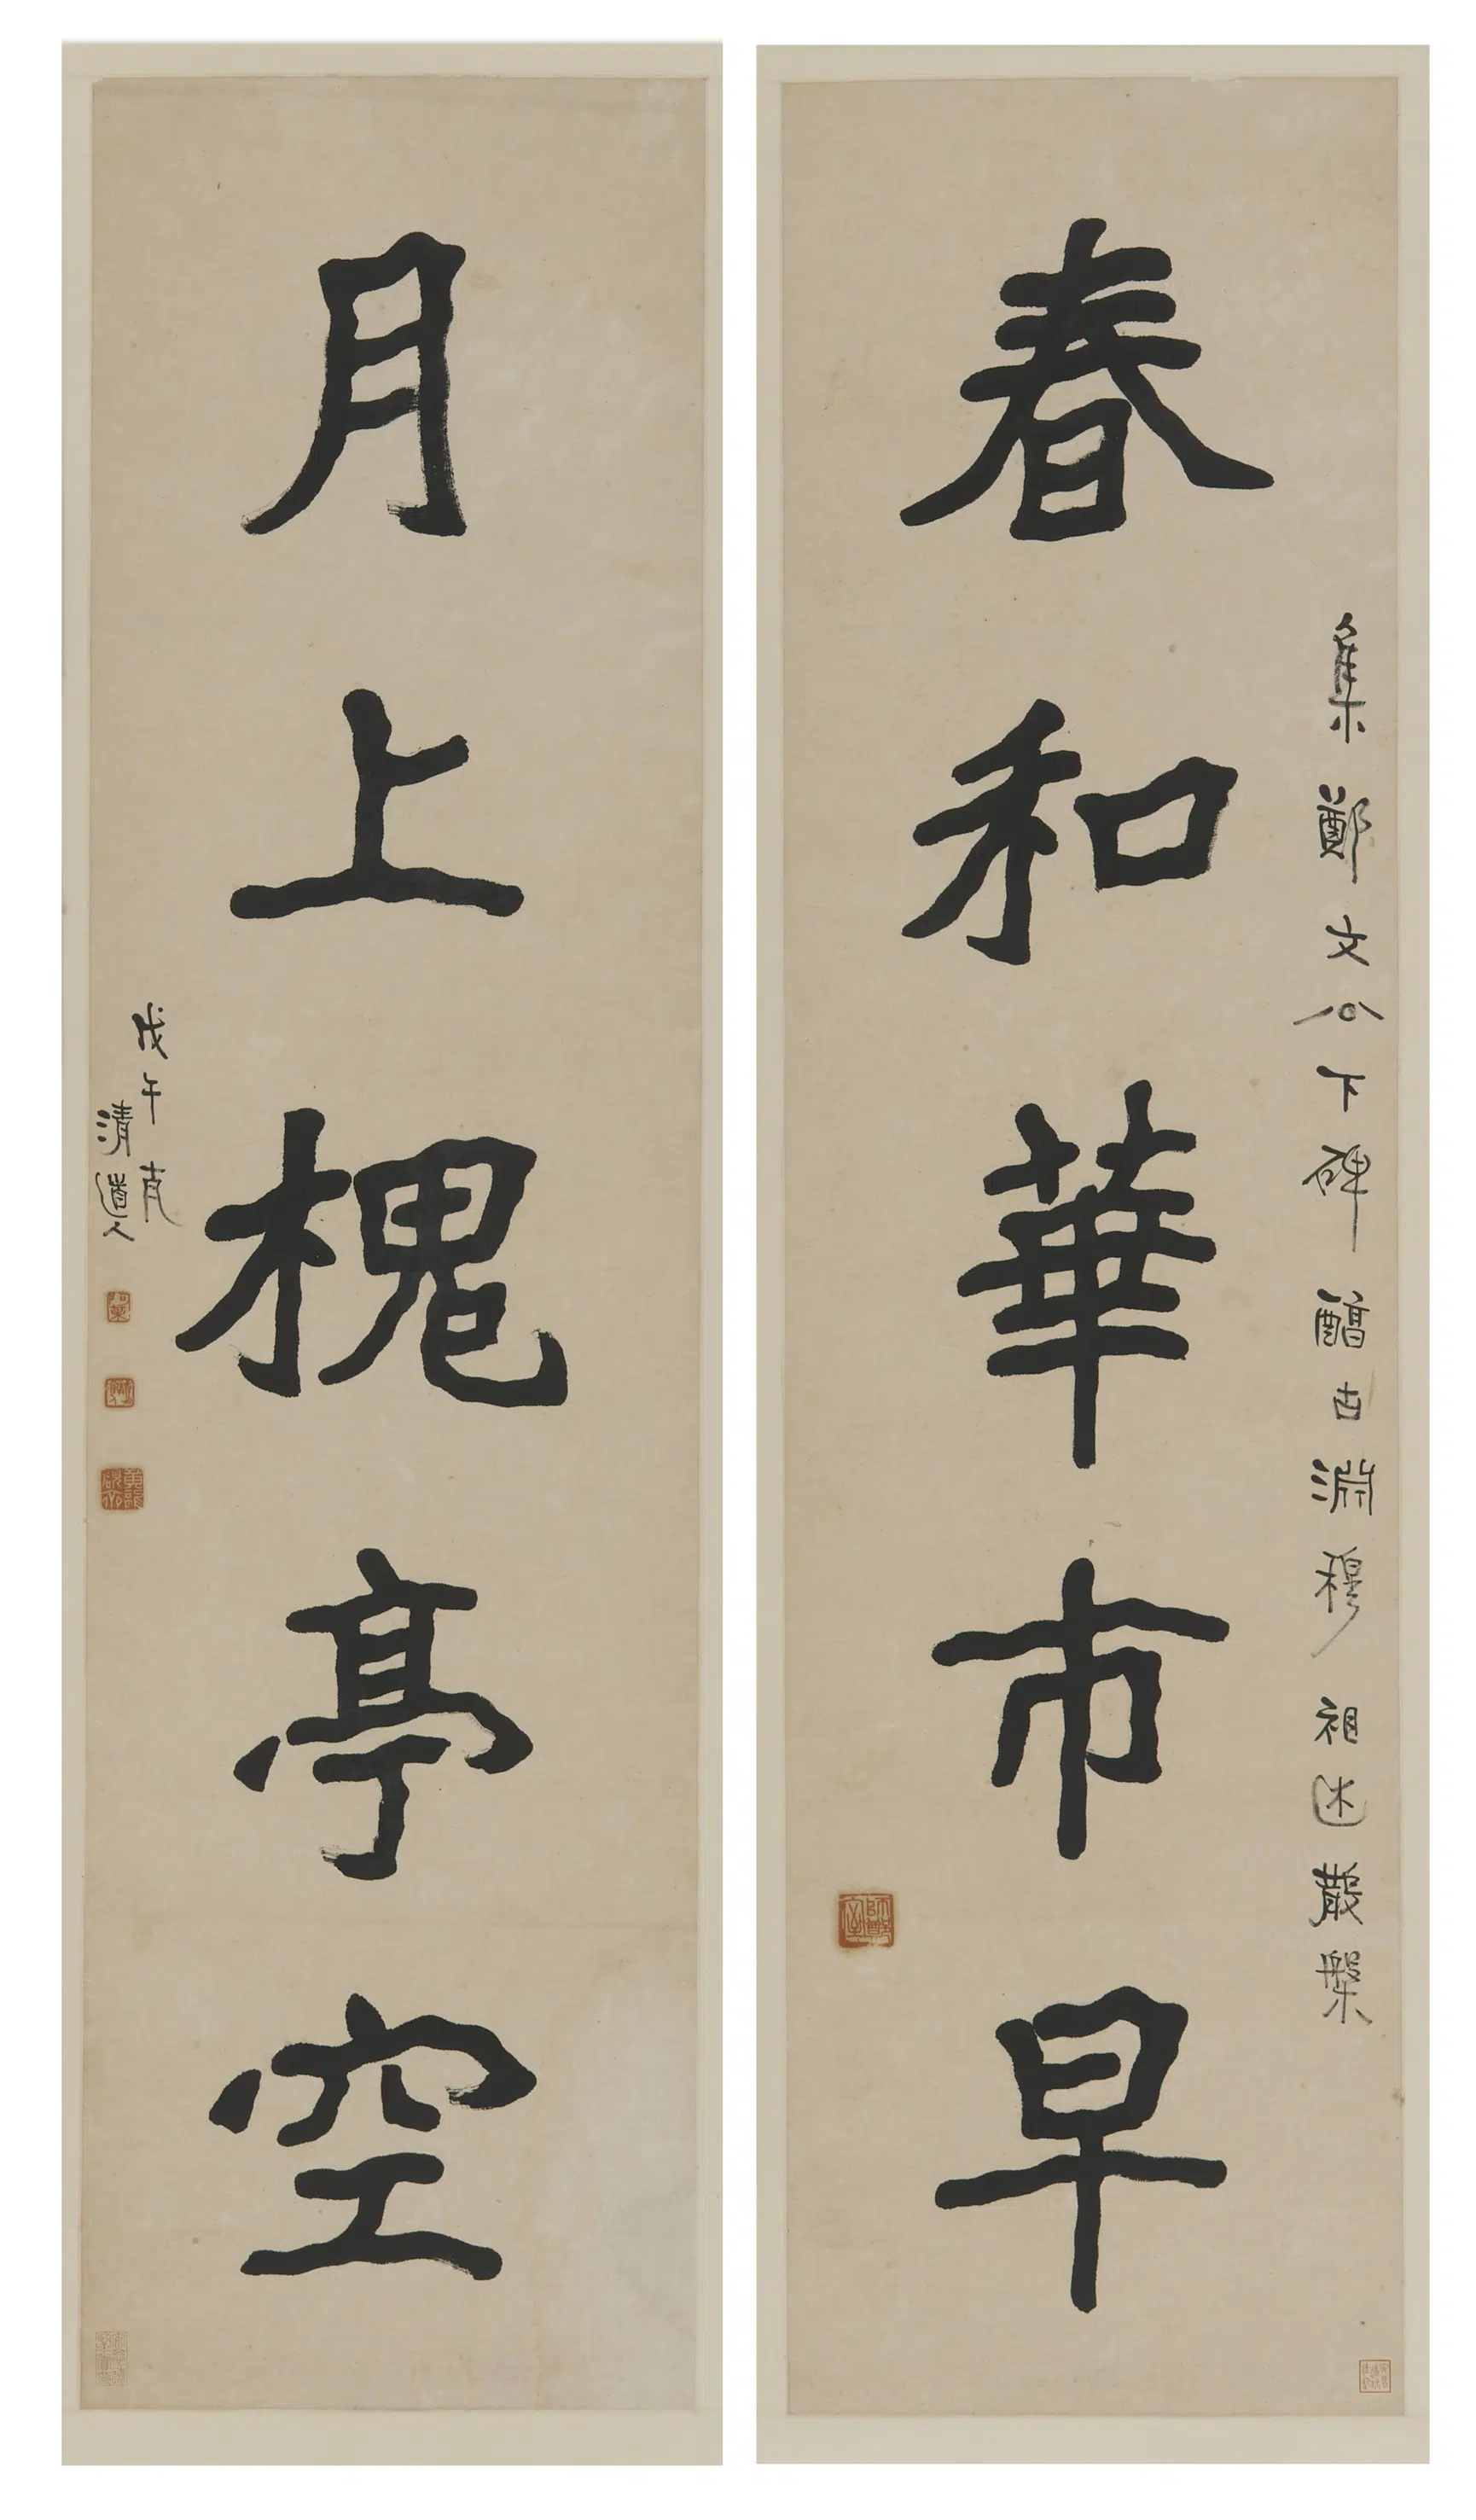 集鄭文公下碑醰古淵穆祖述散槃
春和華市早
月上槐亭空
戊午克
清道人